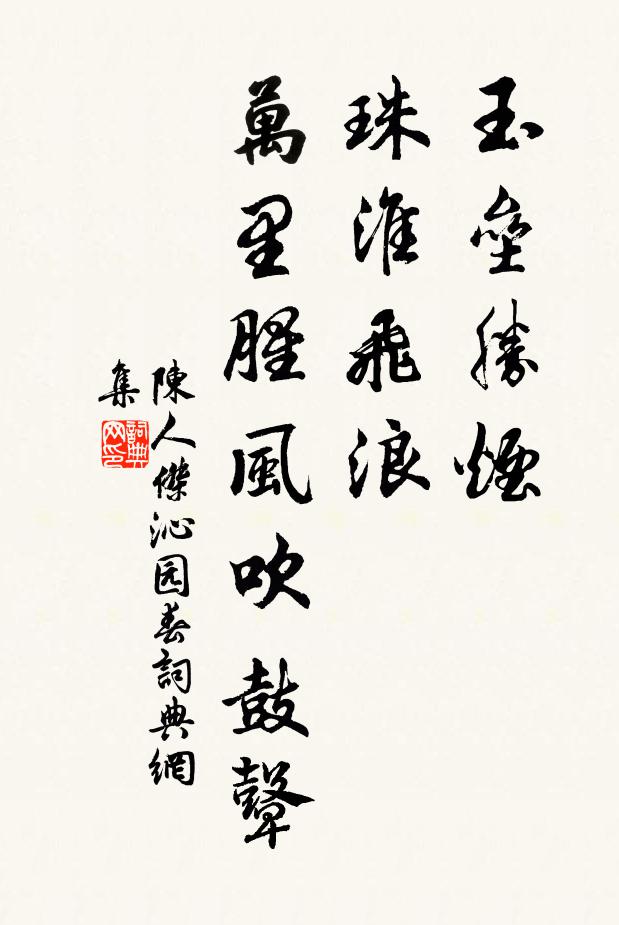 玉壘騰煙
珠淮飛浪
萬里腥風吹鼓鼙
陳人傑沁园春詞典網
集
詞典网印